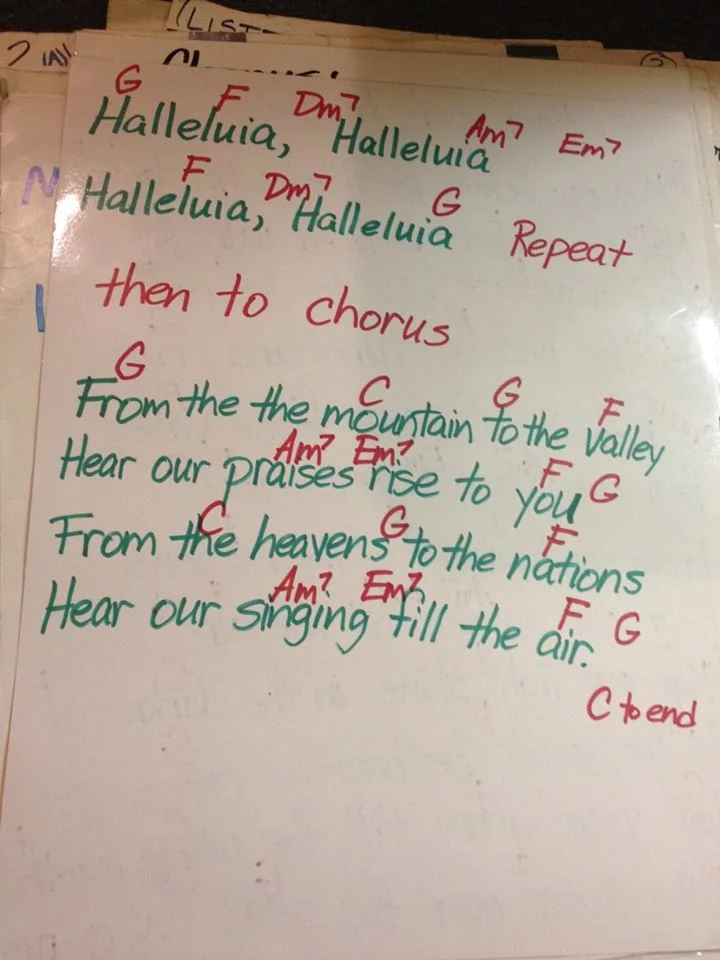 (LIST
G F Dm7 Am7 Em7
Halleluia, Halleluia
F Dm7 G
Halleluia, Halleluia Repeat
then to chorus
G C G F
From the the mountain to the valley
Am7 Em7 F G
Hear our praises rise to you
C G F
From the heavens to the nations
Am7 Em7 F G
Hear our singing till the air.
C to end